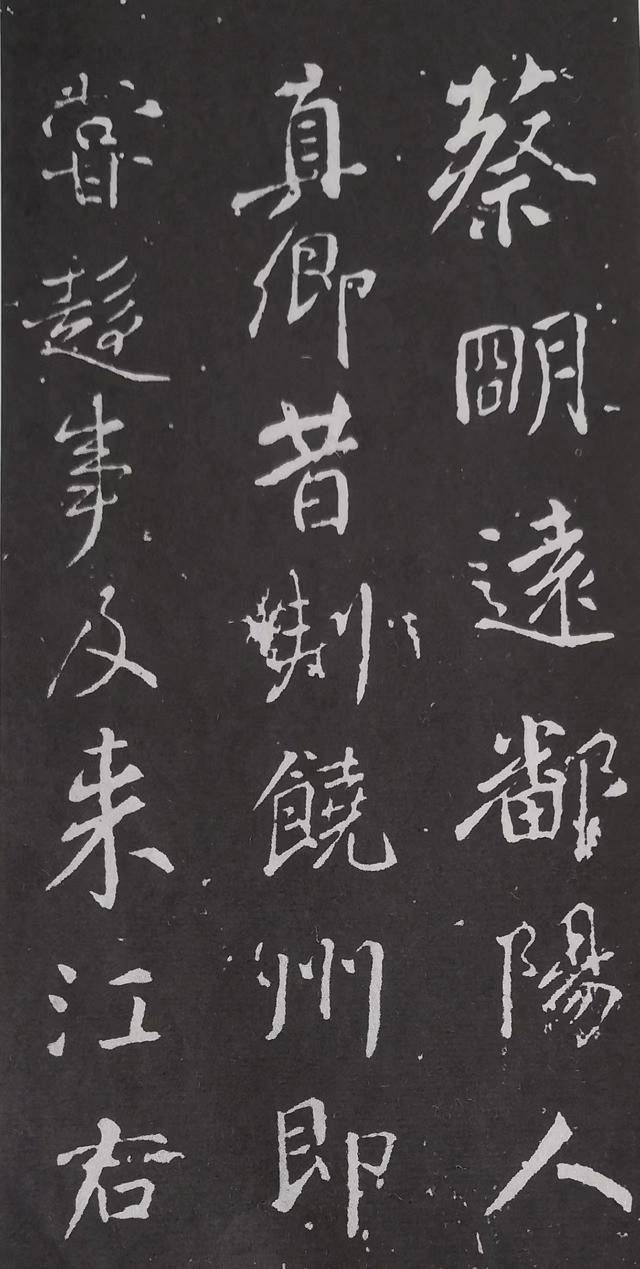 蔡明遠鄱陽人
真卿昔刺饒州即
嘗趨事及来江右